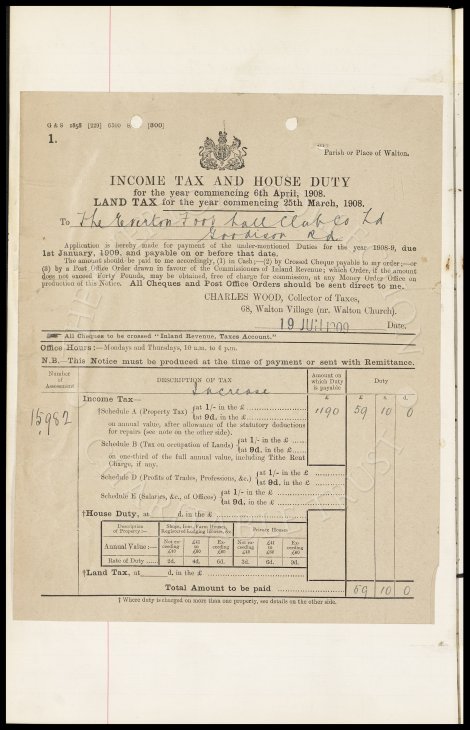 G & S 1858 [229] 6500 [800]
1.
Parish or Place of Walton.
INCOME TAX AND HOUSE DUTY
for the year commencing 6th April, 1908.
LAND TAX for the year commencing 25th March, 1908.
To The Everton Foot ball Club Co Ld
Goodison Rd
Application is hereby made for payment of the under-mentioned Duties for the year 1908-9, due
1st January, 1909, and payable on or before that date.
The amount should be paid to me accordingly, (1) in Cash;—(2) by Crossed Cheque payable to my order;—or
(3) by a Post Office Order drawn in favour of the Commissioners of Inland Revenue; which Order, if the amount
does not exceed Forty Pounds, may be obtained, free of charge for commission, at any Money Order Office on
production of this Notice. All Cheques and Post Office Orders should be sent direct to me.
CHARLES WOOD, Collector of Taxes,
68, Walton Village (nr. Walton Church).
19 Date,
All Cheques to be crossed "Inland Revenue, Taxes Account."
Office Hours:—Mondays and Thursdays, 10 a.m. to 4 p.m.
N.B.—This Notice must be produced at the time of payment or sent with Remittance.
Number of Assessment
DESCRIPTION OF TAX
Amount on which Duty is payable
Duty
Increase
£ £ s. d.
Income Tax—
15982
Schedule A (Property Tax) at 1/- in the £ 1190 59 10 0
at 9d. in the £
on annual value, after allowance of the statutory deductions
for repairs (see note on the other side).
Schedule B (Tax on occupation of Lands) at 1/- in the £
at 9d. in the £
on one-third of the full annual value, including Tithe Rent
Charge, if any.
Schedule D (Profits of Trades, Professions, &c.) at 1/- in the £
at 9d. in the £
Schedule E (Salaries, &c., of Offices) at 1/- in the £
at 9d. in the £
†House Duty, at d. in the £
Description of Property:— Shops, Inns, Farm Houses, Registered Lodging Houses, &c. Private Houses
Annual Value:— Not exceeding £40 £41 to £60 Exceeding £60 Not exceeding £40 £41 to £60 Exceeding £60
Rate of Duty 2d. 4d. 6d. 3d. 6d. 9d.
†Land Tax, at d. in the £
Total Amount to be paid 59 10 0
† Where duty is charged on more than one property, see details on the other side.